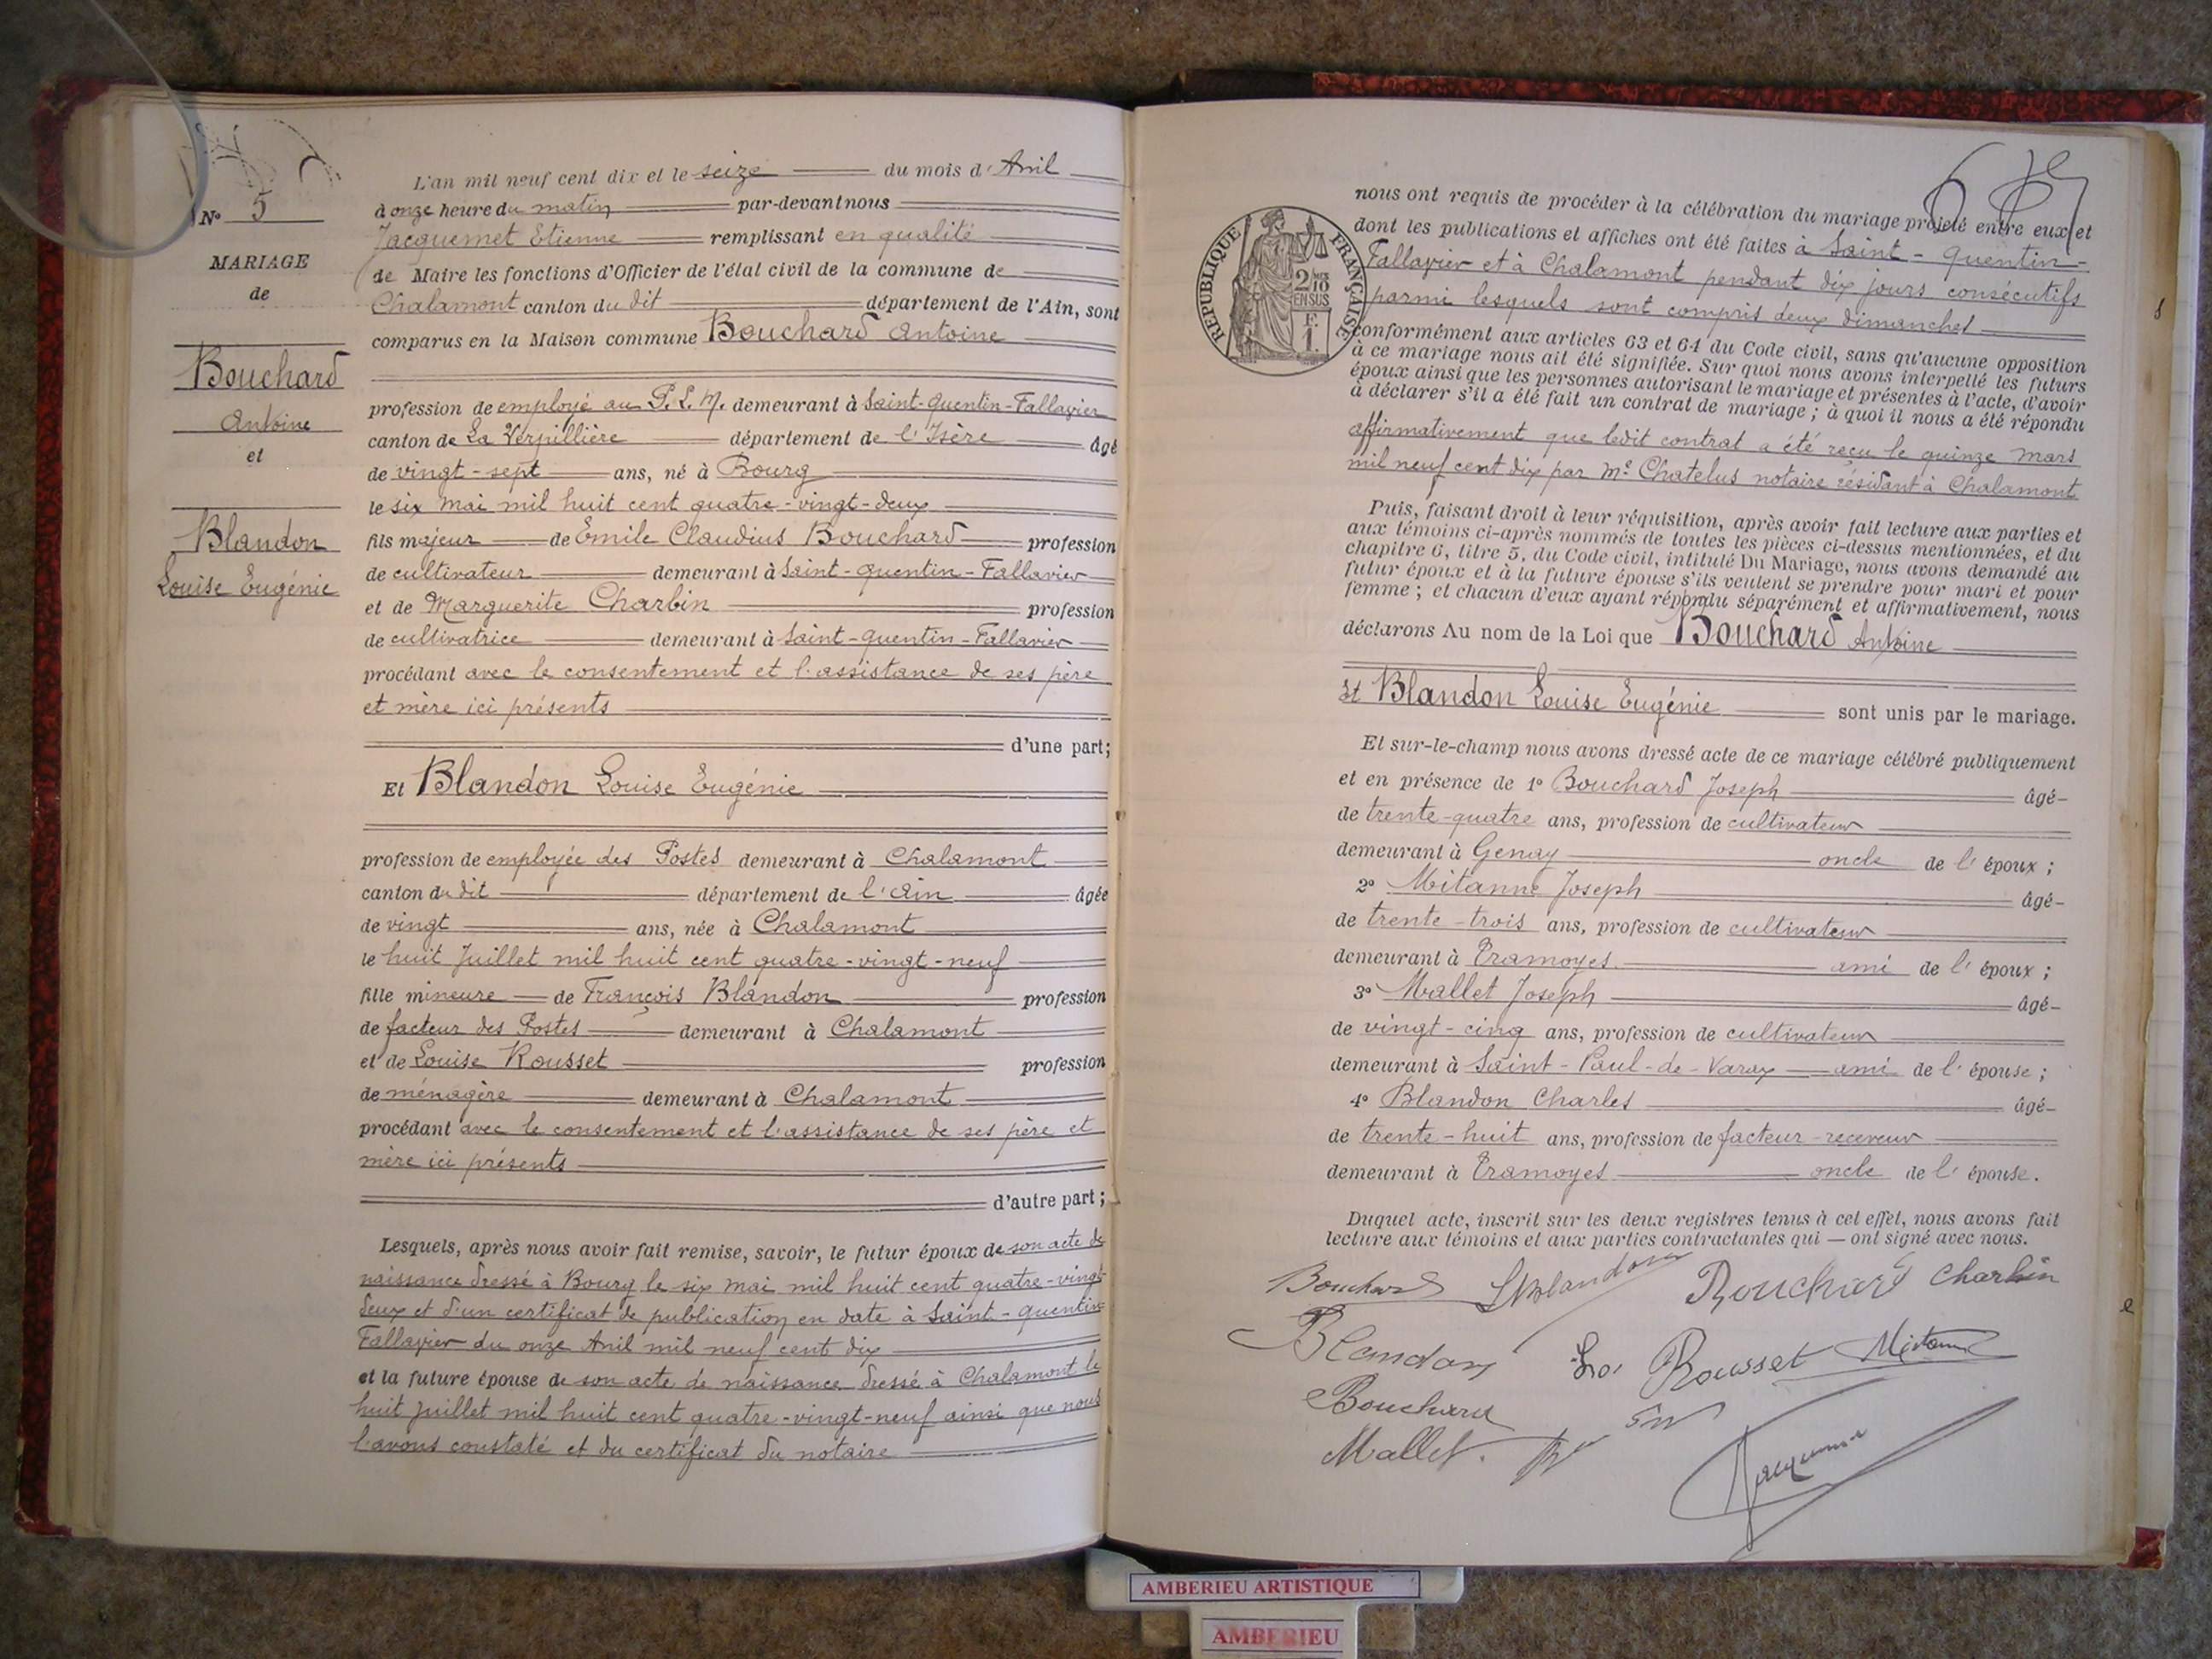 N° 5
MARIAGE
de
Bouchard
Antoine
et
Blandon
Louise Eugénie
L'an mil neuf cent dix et le seize du mois d'Avril
à onze heure du matin par-devant nous
Jacquemet Etienne remplissant en qualité
de Maire les fonctions d'Officier de l'état civil de la commune de
Chalamont canton du dit département de l'Ain, sont
comparus en la Maison commune Bouchard Antoine
profession de employé au P. L. M. demeurant à Saint-Quentin-Fallavier
canton de La Verpillière département de l'Isère âgé
de vingt-sept ans, né à Bourg
le six Mai mil huit cent quatre-vingt-deux
fils majeur de Emile Claudius Bouchard profession
de cultivateur demeurant à Saint-Quentin-Fallavier
et de Marguerite Charbin profession
de cultivatrice demeurant à Saint-Quentin-Fallavier
procédant avec le consentement et l'assistance de ses père
et mère ici présents
d'une part;
Et Blandon Louise Eugénie
profession de employée des Postes demeurant à Chalamont
canton du dit département de l'Ain âgée
de vingt ans, née à Chalamont
le huit Juillet mil huit cent quatre-vingt-neuf
fille mineure de François Blandon profession
de facteur des Postes demeurant à Chalamont
et de Louise Rousset profession
de ménagère demeurant à Chalamont
procédant avec le consentement et l'assistance de ses père et
mère ici présents
d'autre part;
Lesquels, après nous avoir fait remise, savoir, le futur époux de son acte de
naissance dressé à Bourg le six Mai mil huit cent quatre-vingt-
deux et d'un certificat de publication en date à Saint-Quentin-
Fallavier du onze Avril mil neuf cent dix
et la future épouse de son acte de naissance dressé à Chalamont le
huit Juillet mil huit cent quatre-vingt-neuf ainsi que nous
l'avons constaté et du certificat du notaire
RÉPUBLIQUE FRANÇAISE
2/10
EN SUS
F.
1.
nous ont requis de procéder à la célébration du mariage projeté entre eux et
dont les publications et affiches ont été faites à Saint-Quentin-
Fallavier et à Chalamont pendant dix jours consécutifs
parmi lesquels sont compris deux dimanches
conformément aux articles 63 et 64 du Code civil, sans qu'aucune opposition
à ce mariage nous ait été signifiée. Sur quoi nous avons interpellé les futurs
époux ainsi que les personnes autorisant le mariage et présentes à l'acte, d'avoir
à déclarer s'il a été fait un contrat de mariage; à quoi il nous a été répondu
affirmativement que ledit contrat a été reçu le quinze Mars
mil neuf cent dix par Me Chatelus notaire résidant à Chalamont
Puis, faisant droit à leur réquisition, après avoir fait lecture aux parties et
aux témoins ci-après nommés de toutes les pièces ci-dessus mentionnées, et du
chapitre 6, titre 5, du Code civil, intitulé Du Mariage, nous avons demandé au
futur époux et à la future épouse s'ils veulent se prendre pour mari et pour
femme; et chacun d'eux ayant répondu séparément et affirmativement, nous
déclarons Au nom de la Loi que Bouchard Antoine
Et Blandon Louise Eugénie sont unis par le mariage.
Et sur-le-champ nous avons dressé acte de ce mariage célébré publiquement
et en présence de 1° Bouchard Joseph âgé
de trente-quatre ans, profession de cultivateur
demeurant à Genay oncle de l'époux;
2° Mitanne Joseph âgé
de trente-trois ans, profession de cultivateur
demeurant à Tramoyes ami de l'époux;
3° Mallet Joseph âgé
de vingt-cinq ans, profession de cultivateur
demeurant à Saint-Paul-de-Varax ami de l'épouse;
4° Blandon Charles âgé
de trente-huit ans, profession de facteur-receveur
demeurant à Tramoyes oncle de l'épouse.
Duquel acte, inscrit sur les deux registres tenus à cet effet, nous avons fait
lecture aux témoins et aux parties contractantes qui — ont signé avec nous.
Bouchard LBlandon Bouchard Charbin
Blandon Rousset Mitanne
Bouchard
Mallet
Jacquemet
AMBERIEU ARTISTIQUE
AMBERIEU